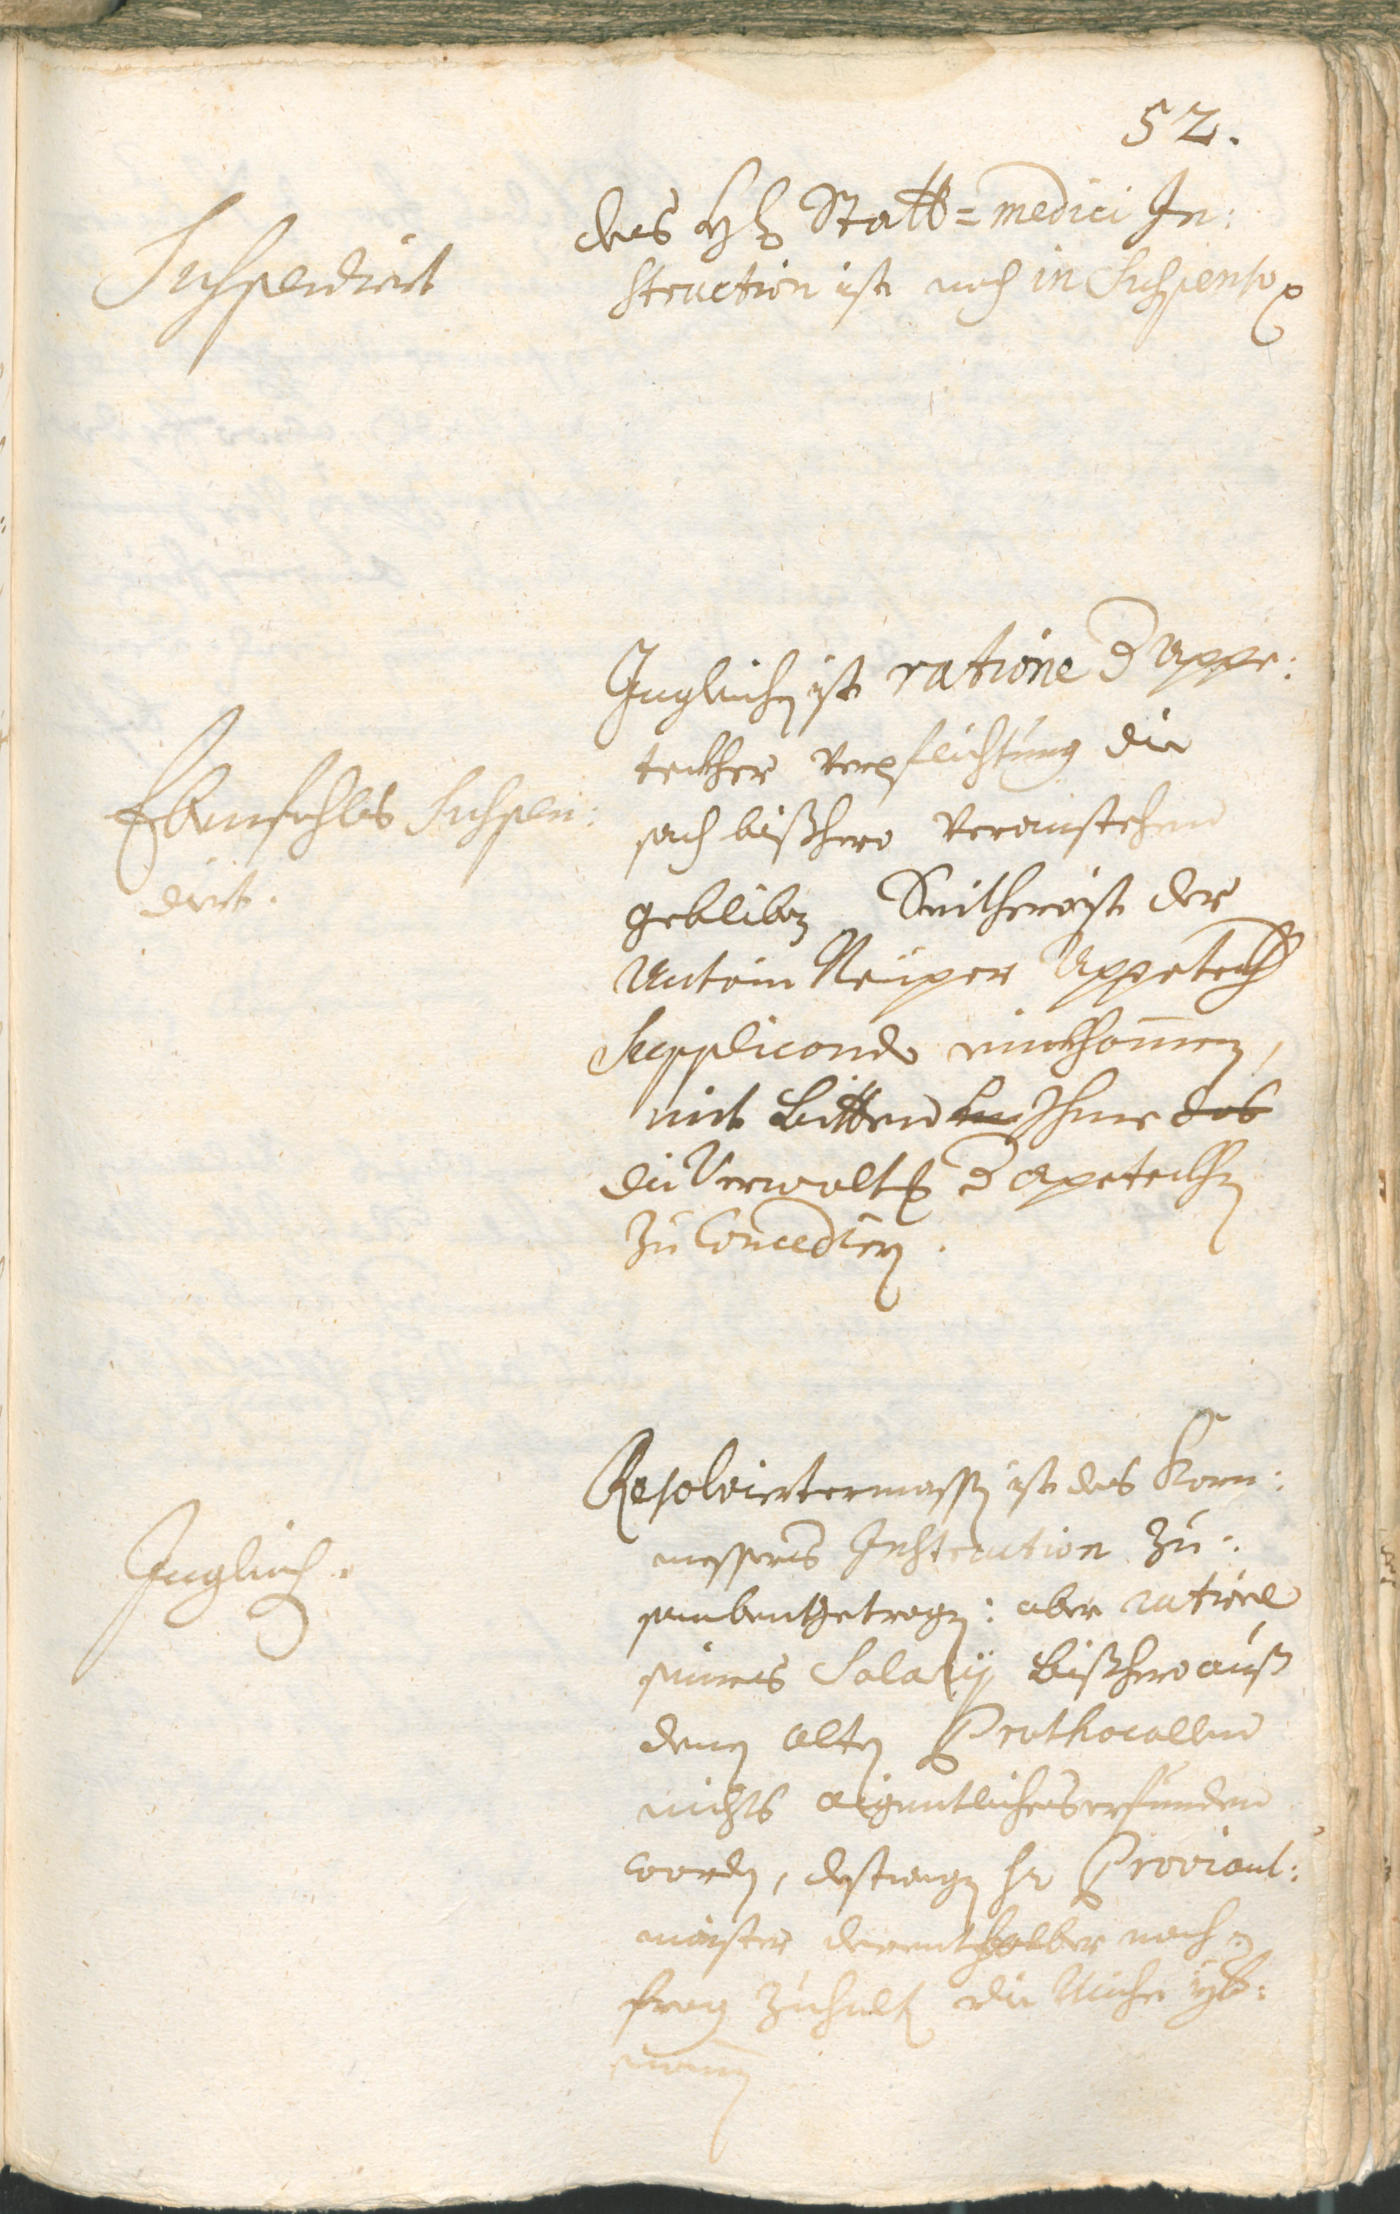 52.
Suspendirt
des H: Statt=medici In:
struction ist noch in Suspenso
Ebenfahls Suspen:
dirt.
Ingleichen ist ratione d Appe:
teckher Verpflichtung die
sach bißhero Verainstehend
gebliben Seithero ist der
Antoin Neuper Appeteckh
Supplicando einkhommen,
mit bitten Ihme das
die Verwaltung d Apeteckhen
zu Concedirn.
Ingleich.
Resolviertermassen ist des Korn:
messers Instruction zu:
sambentgetragen: aber ratione
seines Salarij bißhero auß
denen alten Prothocollen
nichts aigentliches erfunden
worden, destwegen H: Proviant:
maister derenthalber nach=
frag zuhalten die Miehe yb:
nommen